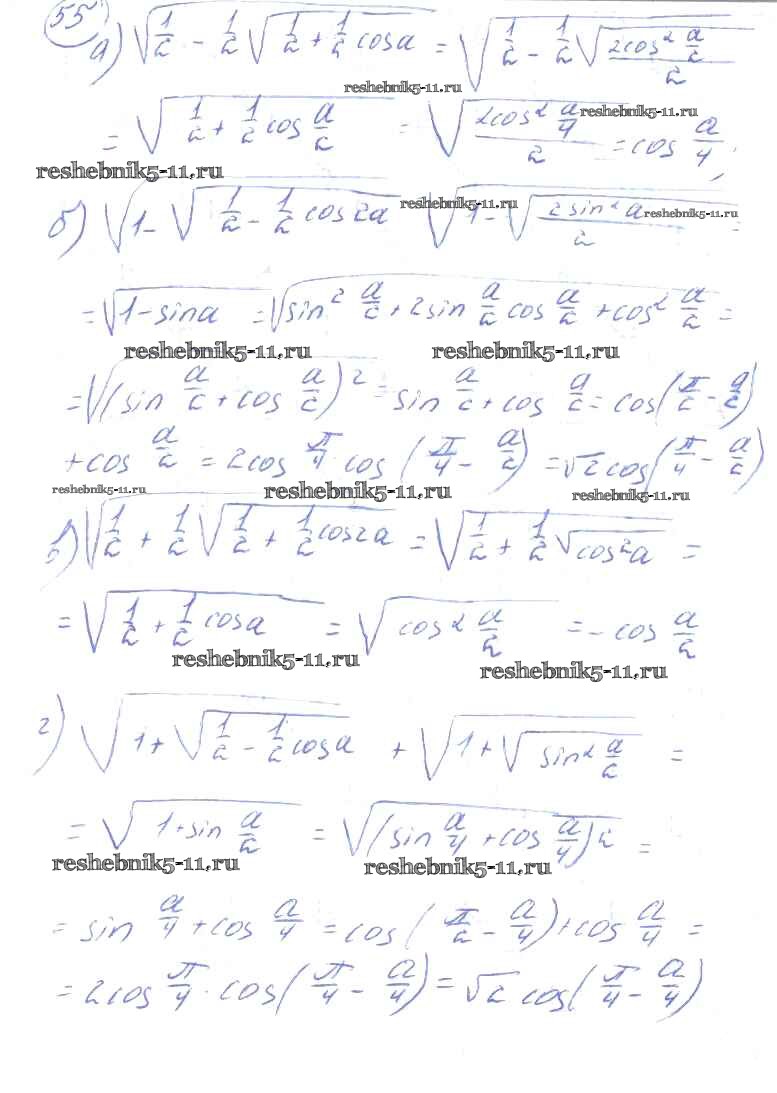 55
а) √(1/2 - 1/2 √(1/2 + 1/2 cos a)) = √(1/2 - 1/2 √(2cos² a/2 / 2))
reshebnik5-11.ru
= √(1/2 + 1/2 cos a/2) = √(2cos² a/4 / 2) = cos a/4;
reshebnik5-11.ru
reshebnik5-11.ru
б) √(1 - √(1/2 - 1/2 cos 2a)) √(1 - √(2 sin² a / 2)) =
reshebnik5-11.ru reshebnik5-11.ru
= √(1 - sin a) = √(sin² a/2 + 2 sin a/2 cos a/2 + cos² a/2) =
reshebnik5-11.ru reshebnik5-11.ru
= √((sin a/2 + cos a/2)²) = sin a/2 + cos a/2 = cos(π/2 - a/2)
+ cos a/2 = 2cos π/4 · cos(π/4 - a/2) = √2 cos(π/4 - a/2)
reshebnik5-11.ru reshebnik5-11.ru reshebnik5-11.ru
в) √(1/2 + 1/2 √(1/2 + 1/2 cos 2a)) = √(1/2 + 1/2 √(cos² a)) =
= √(1/2 + 1/2 cos a) = √(cos² a/2) = - cos a/2
reshebnik5-11.ru reshebnik5-11.ru
г) √(1 + √(1/2 - 1/2 cos a)) + √(1 + √(sin² a/2)) =
= √(1 + sin a/2) = √((sin a/4 + cos a/4)²) =
reshebnik5-11.ru reshebnik5-11.ru
= sin a/4 + cos a/4 = cos(π/2 - a/4) + cos a/4 =
= 2cos π/4 · cos(π/4 - a/4) = √2 cos(π/4 - a/4)